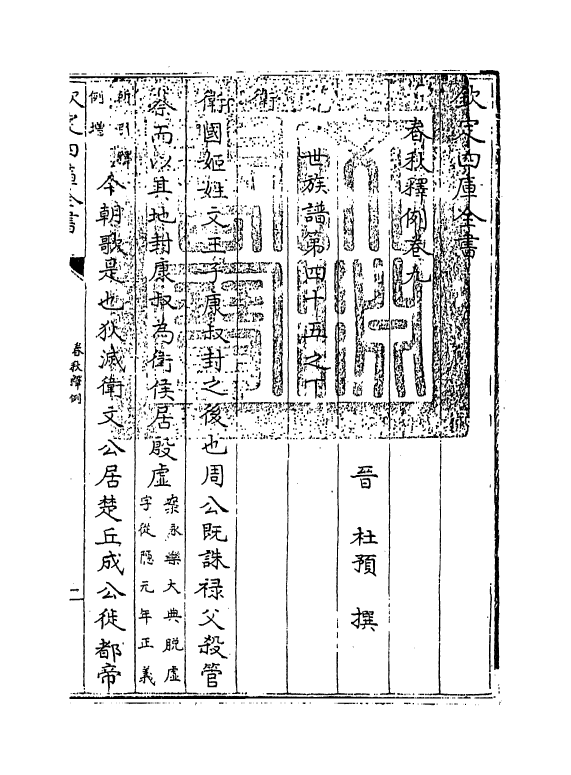 欽定四庫全書
春秋釋例卷九
晉 杜預 撰
世族譜第四十五之下
衛
衛國姬姓文王子康叔封之後也周公既誅祿父殺管
蔡而以其地封康叔為衛侯居殷虛案永樂大典脫虛
字從隱元年正義
所引釋
例増
今朝歌是也狄滅衛文公居楚丘成公徙都帝
欽定四庫全書
春秋釋例